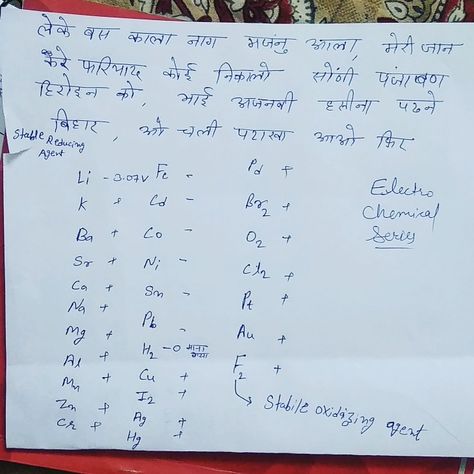 लेके बस काला नाग मजनु आला, मेरी जान
करे फरियाद कोई निकालो सोंनी पंजाबण
हिरोइन को, आई अजनबी हसीना पढने
बिहार, ओ चली पटाखा आओ फिर
Stable Reducing Agent
Li - 3.07V
K +
Ba +
Sr +
Ca +
Na +
Mg +
Al +
Mn +
Zn +
Cr +
Fe -
Cd -
Co -
Ni -
Sn -
Pb -
H2 - 0 माना गया
Cu +
I2 +
Ag +
Hg +
Pd +
Br2 +
O2 +
Cl2 +
Pt +
Au +
F2 +
Stabile oxidizing agent
Electro
Chemical
Series